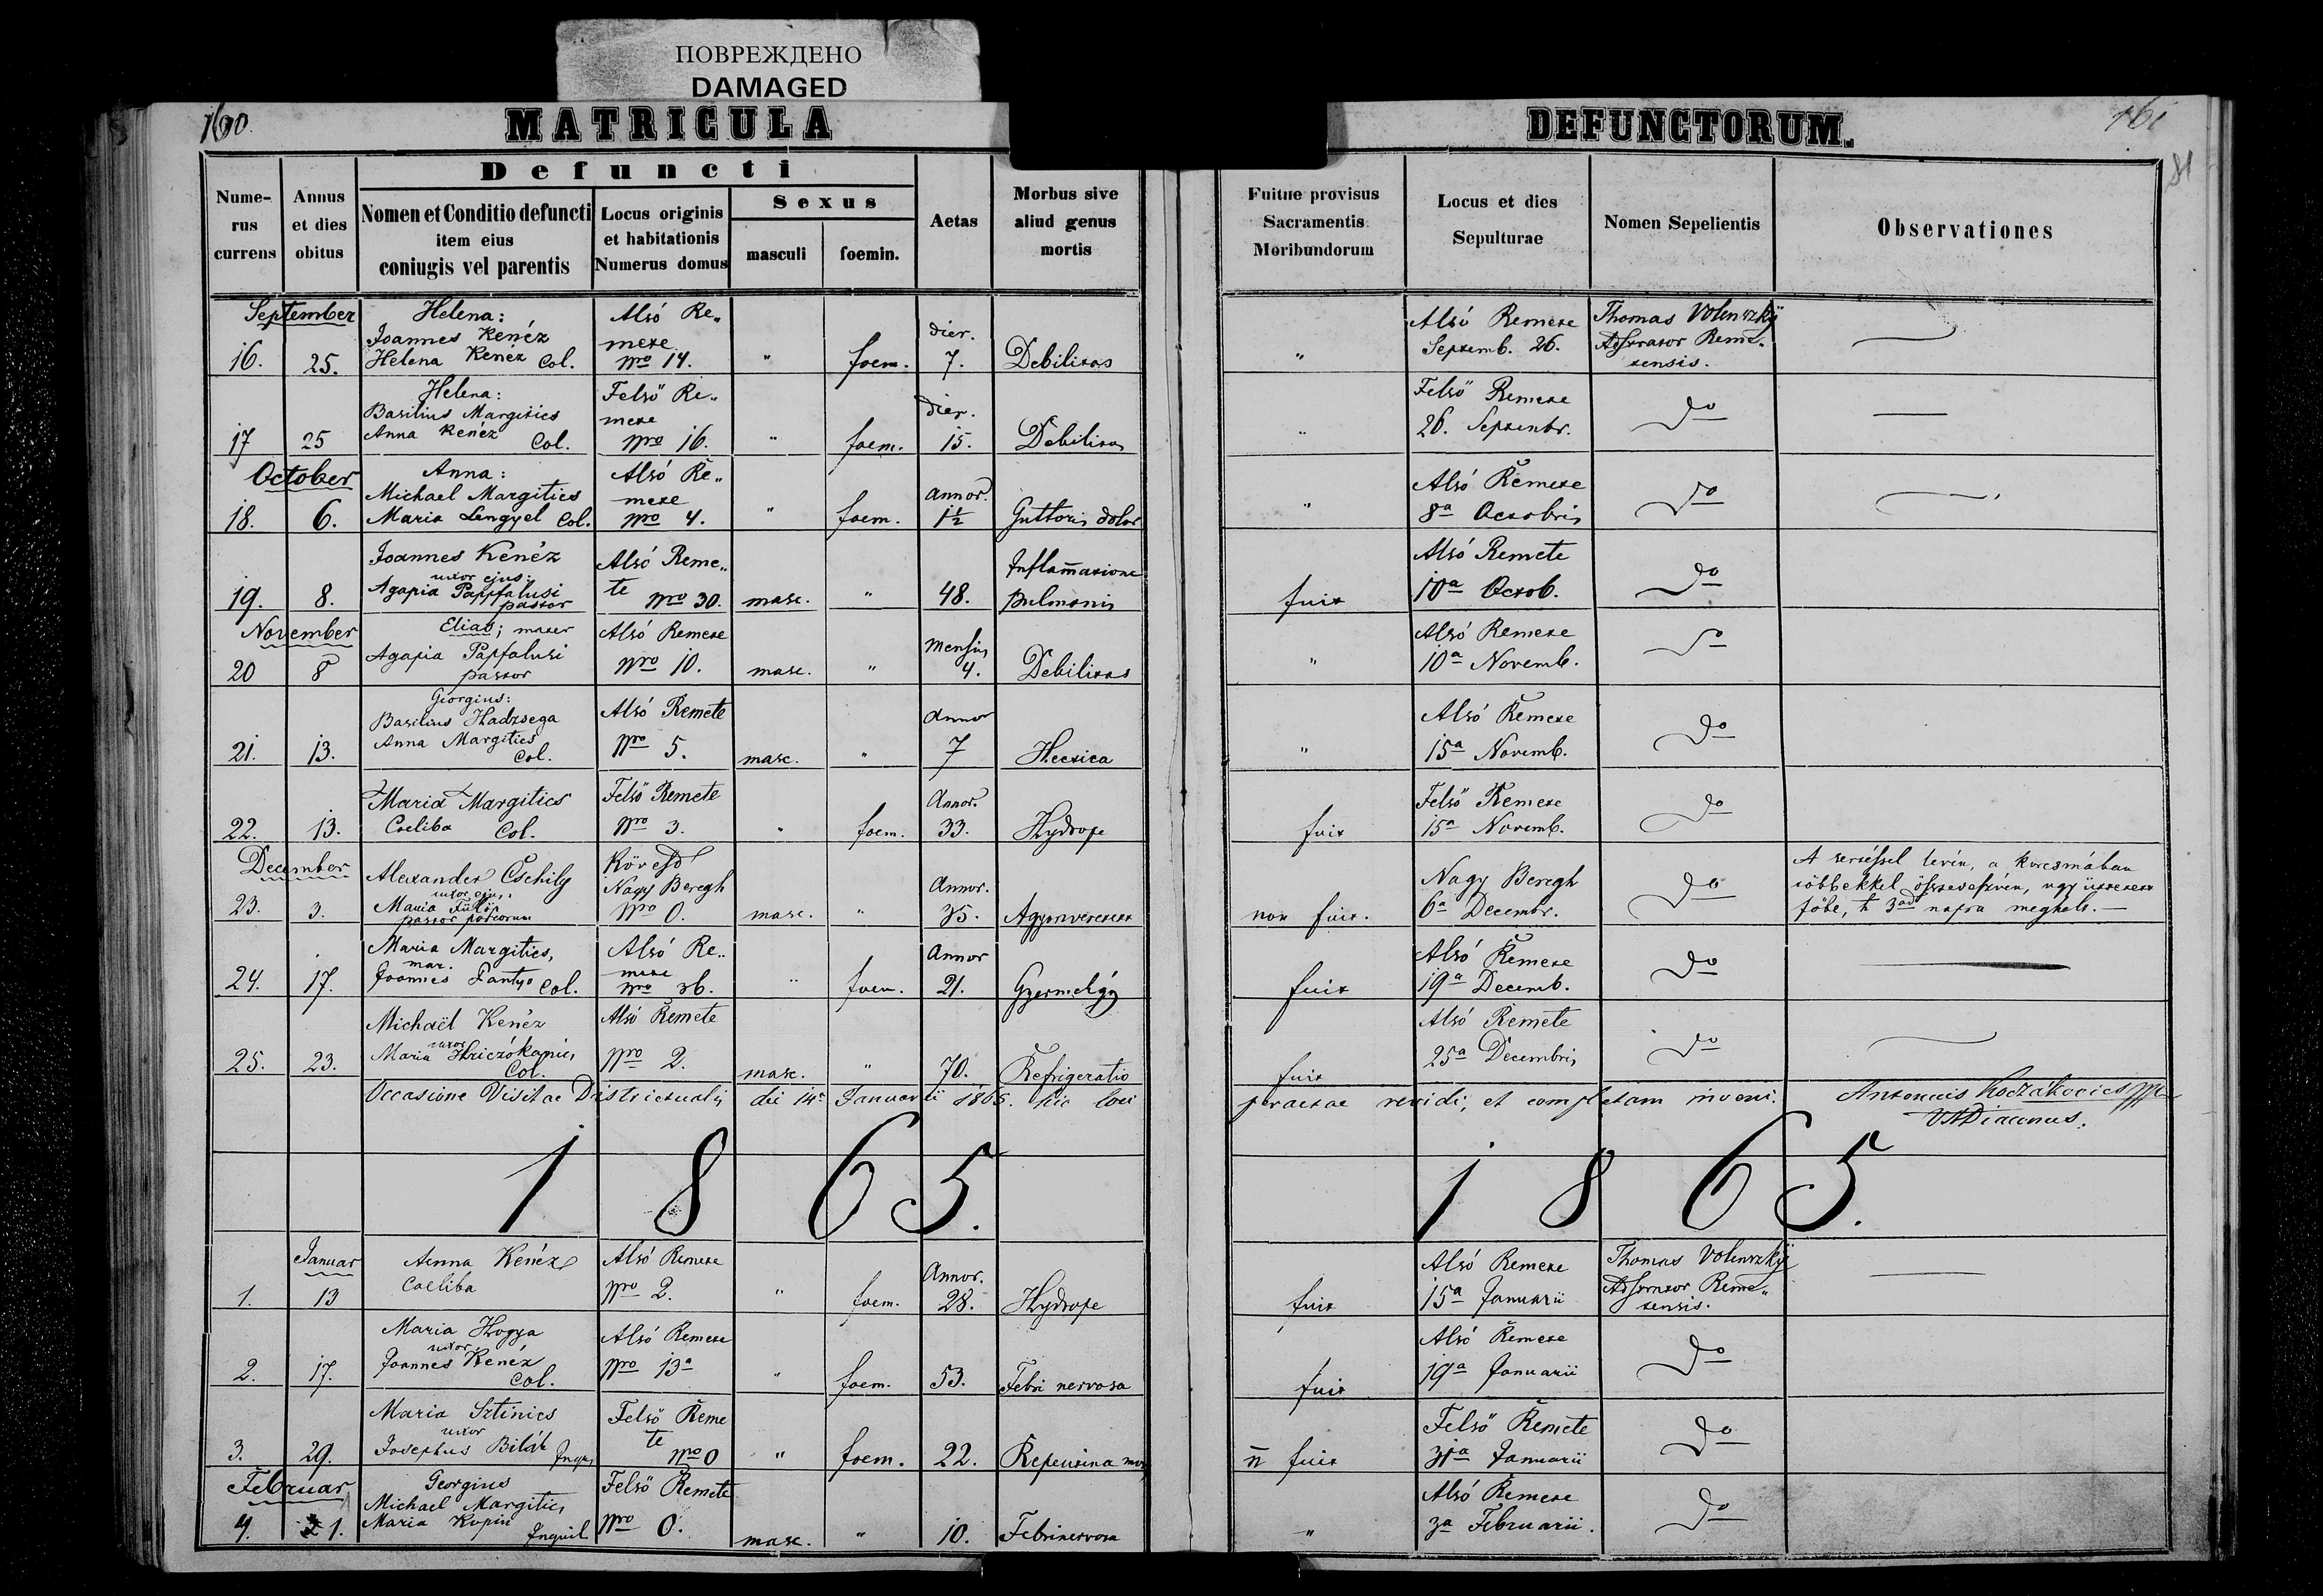 ПОВРЕЖДЕНО
DAMAGED
160.
MATRICULA
DEFUNCTORUM.
161
81
Defuncti
Nume-
rus
currens
Annus
et dies
obitus
Nomen et Conditio defuncti
item eius
coniugis vel parentis
Locus originis
et habitationis
Numerus domus
Sexus
masculi
foemin.
Aetas
Morbus sive
aliud genus
mortis
Fuitne provisus
Sacramentis
Moribundorum
Locus et dies
Sepulturae
Nomen Sepelientis
Observationes
September
16.
25.
Helena:
Joannes Kenéz
Helena Kenéz Col.
Alsó Re„
mete
nro 14.
"
foem.
dier.
7.
Debilitas
"
Alsó Remete
Septemb. 26.
Thomas Volenszkÿ
Adstrator Reme„
tensis.
17
25
Helena:
Basilius Margitics
Anna Kenéz Col.
Felső Re„
mete
nro 16.
"
foem.
dier.
15.
Debilitas
"
Felső Remete
26. Septembr.
do
October
18.
6.
Anna:
Michael Margitics
Maria Lengyel Col.
Alsó Re„
mete
nro 4.
"
foem.
annor.
1½
Gutturis dolor
"
Alsó Remete
8a Octobris
do
19.
8.
Joannes Kenéz
uxor ejus:
Agapia Pappfalusi
pastor
Alsó Reme„
te
nro 30.
masc.
"
48.
Inflam̄atione
pulmonis
fuit
Alsó Remete
10a Octob.
do
November
20
8
Elias; mater
Agapia Papfalusi
pastor
Alsó Remete
nro 10.
masc.
"
Mensis
4.
Debilitas
"
Alsó Remete
10a Novemb.
do
21.
13.
Giorgius:
Basilius Hadzsega
Anna Margitics
Col.
Alsó Remete
nro 5.
masc.
"
Annor
7
Hectica
"
Alsó Remete
15a Novemb.
do
22.
13.
Maria Margitics
Coeliba Col.
Felső Remete
nro 3.
"
foem.
Annor.
33.
Hydrope
fuit
Felső Remete
15a Novemb.
do
December
23.
3.
Alexander Csehily
uxor ejus,
Maria Fülöp
pastor porcorum
Nagy Beregh
nro 0.
masc.
"
Annor.
35.
Agyonveretett
non fuit.
Nagy Beregh
6a Decembr.
do
A sertéssel lévén, a korcsmában
többekkel összeveszvén, ugy üttetett
főbe, h 3ad napra meghalt.—
24.
17.
Maria Margitics,
mar.
Joannes Fantyo Col.
Alsó Re„
mete
nro 36.
"
foem.
Annor
21.
Gyermekágy
fuit
Alsó Remete
19a Decemb.
do
25.
23.
Michaël Kenéz
uxor
Maria Hriczókanics
Col.
Alsó Remete
nro 2.
masc.
"
70.
Refrigeratio
fuit
Alsó Remete
25a Decembris
do
Occasione Visitae Districtualis die 14a Januarii 1865. hic loci peractae revidi, et completam inveni. Antonius Koczákovics mp
VADiaconus.
1865.
1865.
Januar
1.
13
Anna Kenéz
Coeliba
Alsó Remete
nro 2.
"
foem.
Annor.
28.
Hydrope
fuit
Alsó Remete
15a Januarii
Thomas Volenszkÿ
Adstrator Reme„
tensis.
2.
17.
Maria Hogya
uxor
Joannes Kenéz
Col.
Alsó Remete
nro 13a
"
foem.
53.
Febri nervosa
fuit
Alsó Remete
19a Januarii
do
3.
29.
Maria Sztinics
uxor
Josephus Bilák
Felső Reme
te
nro 0
"
foem.
22.
Repentina mors
n̄ fuit
Felső Remete
31a Januarii
do
Februar
4.
1.
Georgius
Michael Margitics
Maria Kopin
Inquil
Felső Remete
nro 0.
masc.
"
10.
Febrinervosa
"
Alsó Remete
3a Februarii.
do